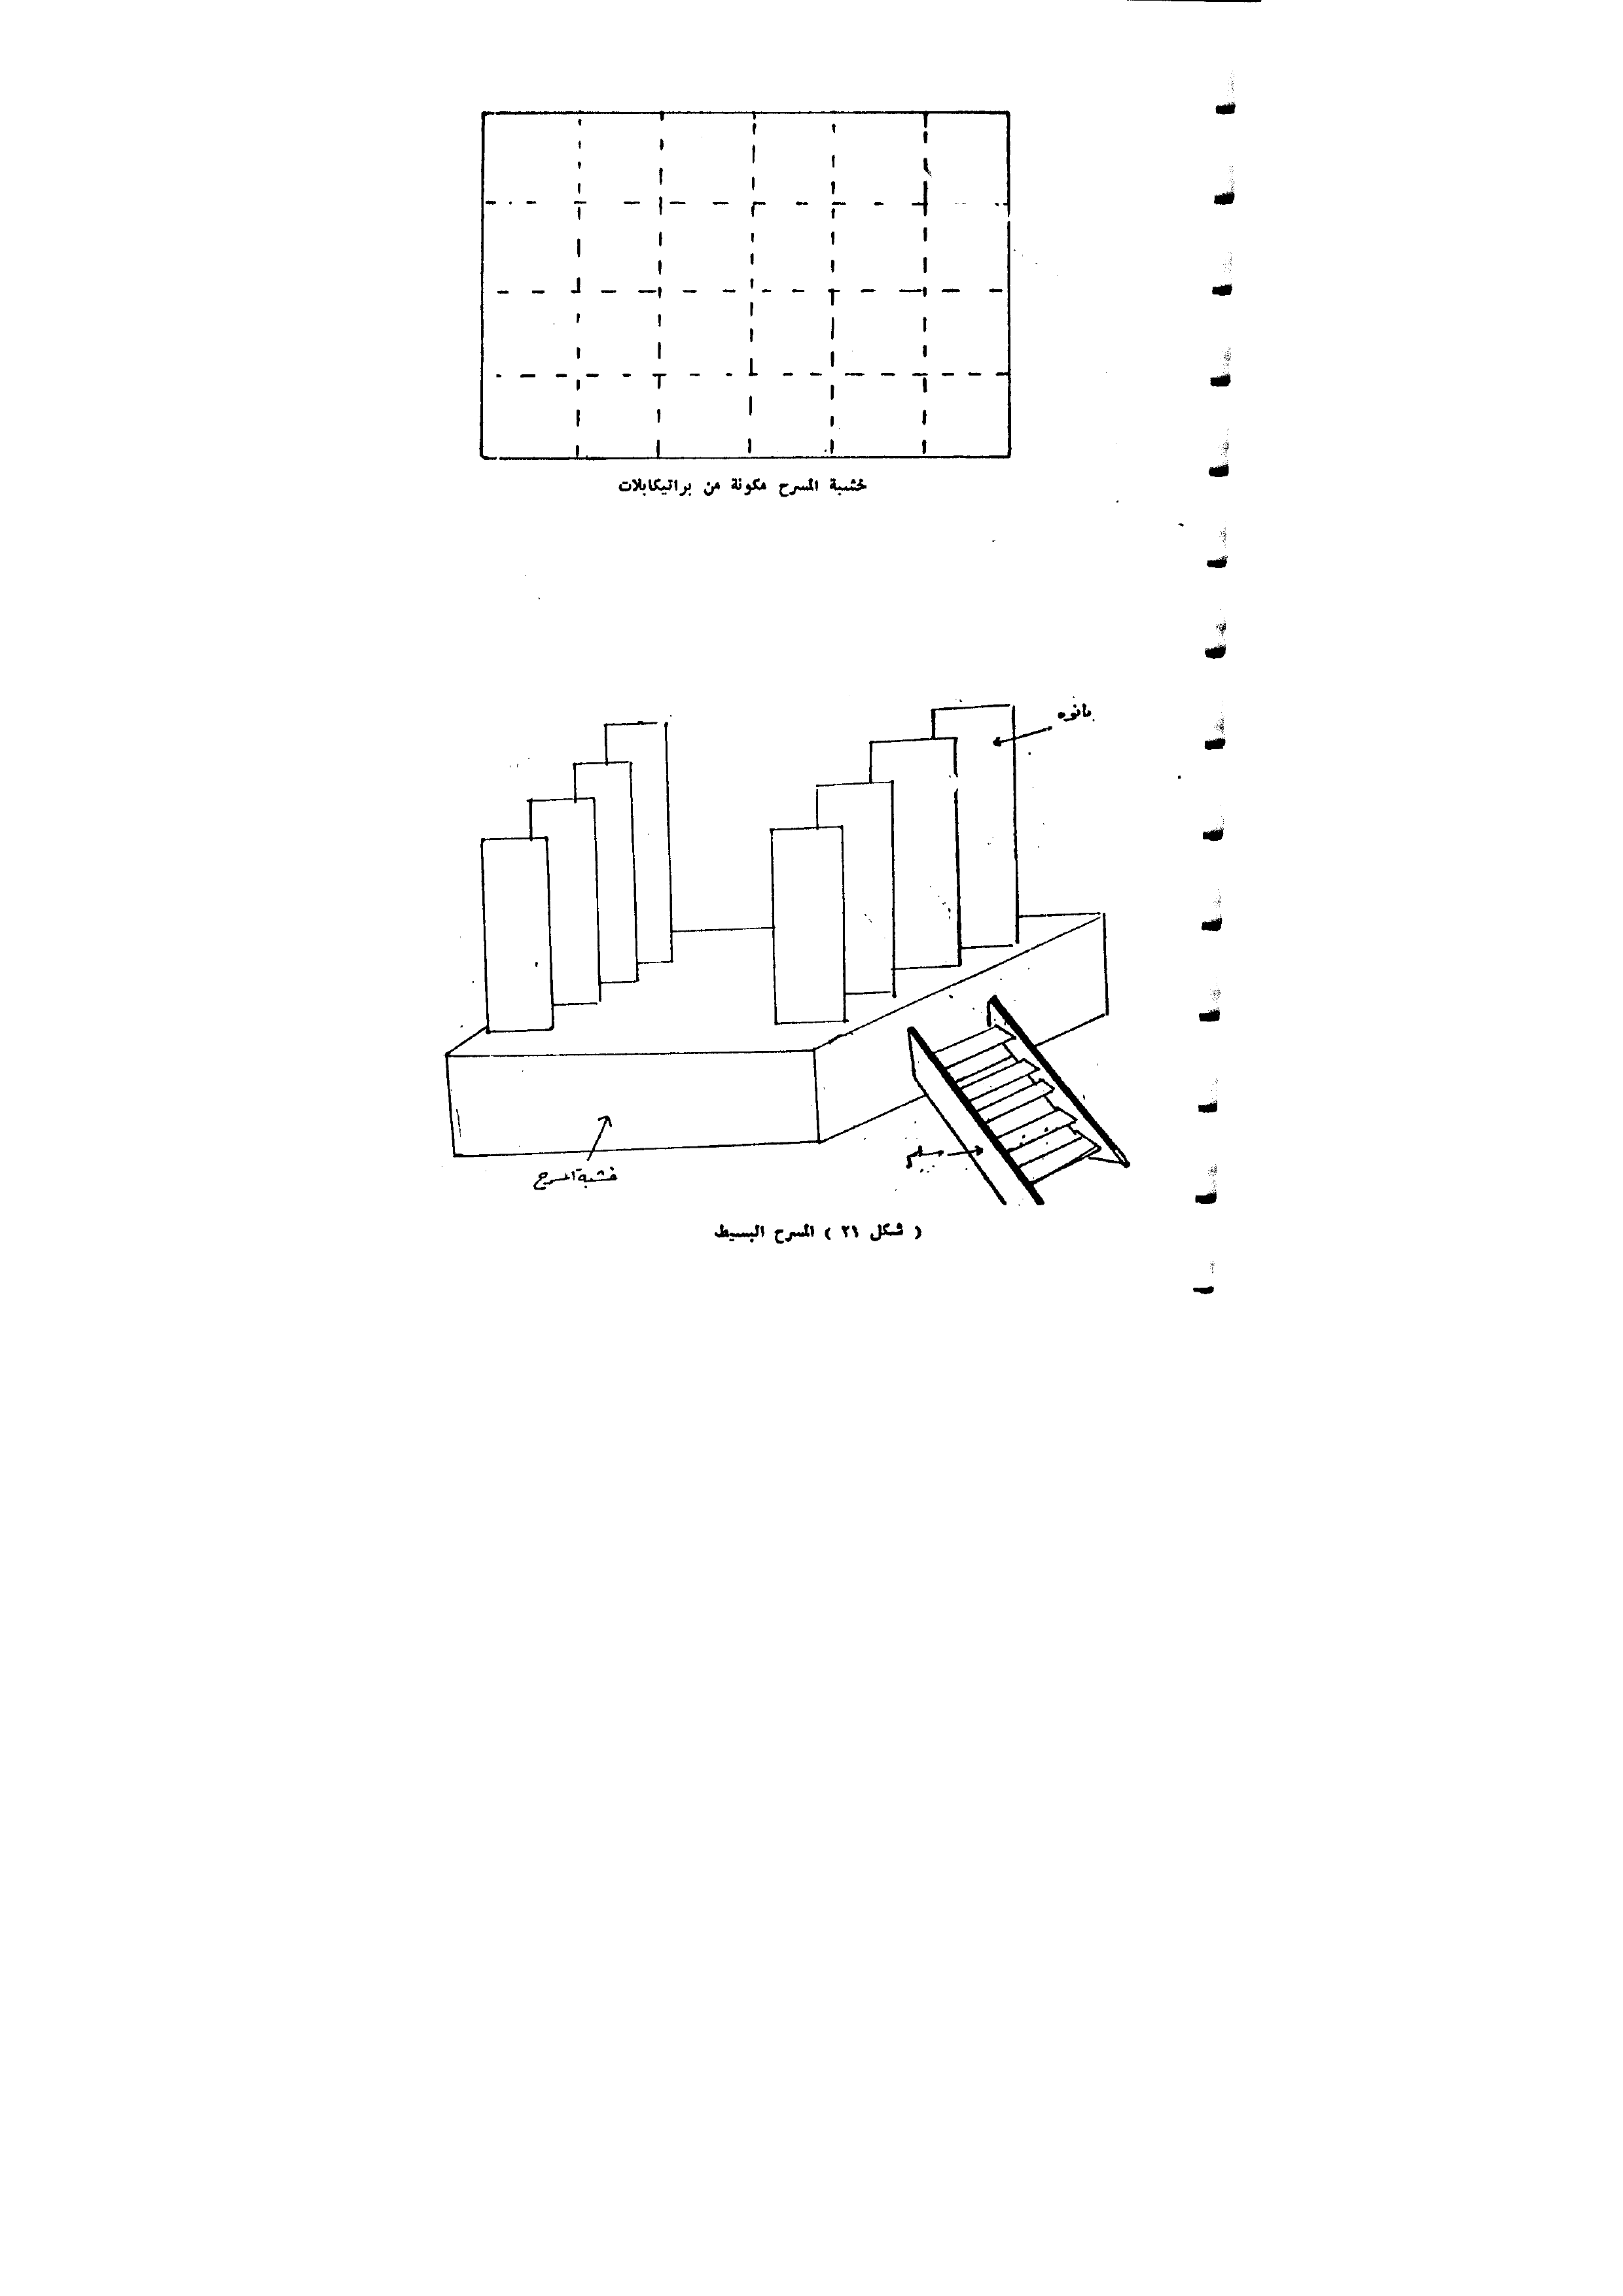 خشبة المسرح مكونة من براتيكابلات
بانوه
سلم
خشبة المسرح
( شكل ٢١ ) المسرح البسيط